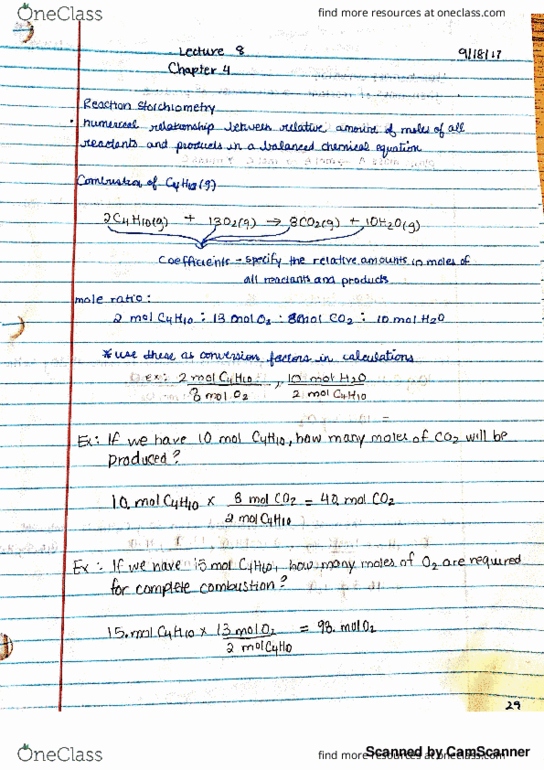 OneClass
find more resources at oneclass.com
Lecture 8
9/18/17
Chapter 4
Reaction Stoichiometry
• numerical relationship between relative amount of moles of all
reactants and products in a balanced chemical equation
Combustion of C4H10(g)
2C4H10(g) + 13O2(g) → 8CO2(g) + 10H2O(g)
Coefficients - specify the relative amounts in moles of
all reactants and products
mole ratio:
2 mol C4H10 : 13 mol O2 : 8mol CO2 : 10 mol H2O
*use these as conversion factors in calculations
ex: 2 mol C4H10 , 10 mol H2O
8 mol O2 2 mol C4H10
Ex: If we have 10 mol C4H10, how many moles of CO2 will be
produced?
10. mol C4H10 x 8 mol CO2 = 40. mol CO2
2 mol C4H10
Ex: If we have 15 mol C4H10, how many moles of O2 are required
for complete combustion?
15. mol C4H10 x 13 mol O2 = 98. mol O2
2 mol C4H10
29
OneClass
find more resources at oneclass.com
Scanned by CamScanner